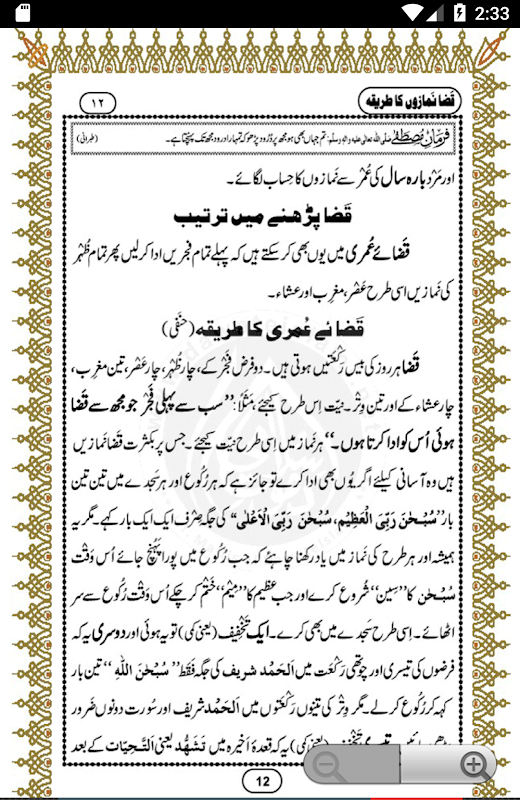 2:33
قَضا نَمازوں کا طریقہ
۱۲
فرمانِ مصطفےٰ صلی اللہ تعالیٰ علیہ والہٖ وسلّم: تم جہاں بھی ہو مجھ پر دُرُود پڑھو کہ تمہارا درود مجھ تک پہنچتا ہے۔ (طبرانی)
اور مَرْد بارہ سال کی عُمْر سے نَمازوں کا حِساب لگائے۔
قَضا پڑھنے میں ترتیب
قَضائے عُمری میں یوں بھی کر سکتے ہیں کہ پہلے تمام فجریں ادا کر لیں پھر تمام ظُہْر
کی نَمازیں اسی طرح عَصْر، مغرِب اور عشاء۔
قَضائے عُمری کا طریقہ (حَنَفی)
قَضا ہر روز کی بیس رَکْعَتیں ہوتی ہیں۔ دو فرض فَجْر کے، چار ظُہْر، چار عَصْر، تین مغرِب،
چار عشاء کے اور تین وِتْر۔ نیّت اِس طرح کیجئے، مَثَلاً: ’’سب سے پہلی فَجْر جو مجھ سے قَضا
ہوئی اُس کو ادا کرتا ہوں۔‘‘ ہر نَماز میں اِسی طرح نیّت کیجئے۔ جس پر بکثرت قَضا نَمازیں
ہیں وہ آسانی کیلئے اگر یُوں بھی ادا کرے تو جائز ہے کہ ہر رُکوع اور ہر سَجدے میں تین تین
بار ’’سُبْحٰنَ رَبِّیَ الْعَظِیْم، سُبْحٰنَ رَبِّیَ الْاَعْلٰی‘‘ کی جگہ صِرْف ایک ایک بار کہے۔ مگر یہ
ہمیشہ اور ہر طرح کی نَماز میں یاد رکھنا چاہئے کہ جب رُکوع میں پورا پہُنچ جائے اُس وَقْت
سُبْحٰن کا ’’سین‘‘ شُروع کرے اور جب عظیم کا ’’مِیْم‘‘ خَتْم کر چکے اُس وَقْت رُکوع سے سر
اٹھائے۔ اِسی طرح سَجدے میں بھی کرے۔ ایک تَخْفِیف (یعنی کمی) تو یہ ہوئی اور دوسری یہ کہ
فرضوں کی تیسری اور چوتھی رَکْعَت میں اَلْحَمْد شریف کی جگہ فَقَط ’’سُبْحٰنَ اللہِ‘‘ تین بار
کہہ کر رُکوع کر لے۔ مگر وِتْر کی تینوں رَکْعَتوں میں اَلْحَمْد شریف اور سُورت دونوں ضَرور
پڑھی جائیں۔ تیسری تَخْفِیف (یعنی کمی) یہ کہ قعدۂ اَخیرہ میں تَشَہُّد یعنی اَلتَّحِیّات کے بعد
12